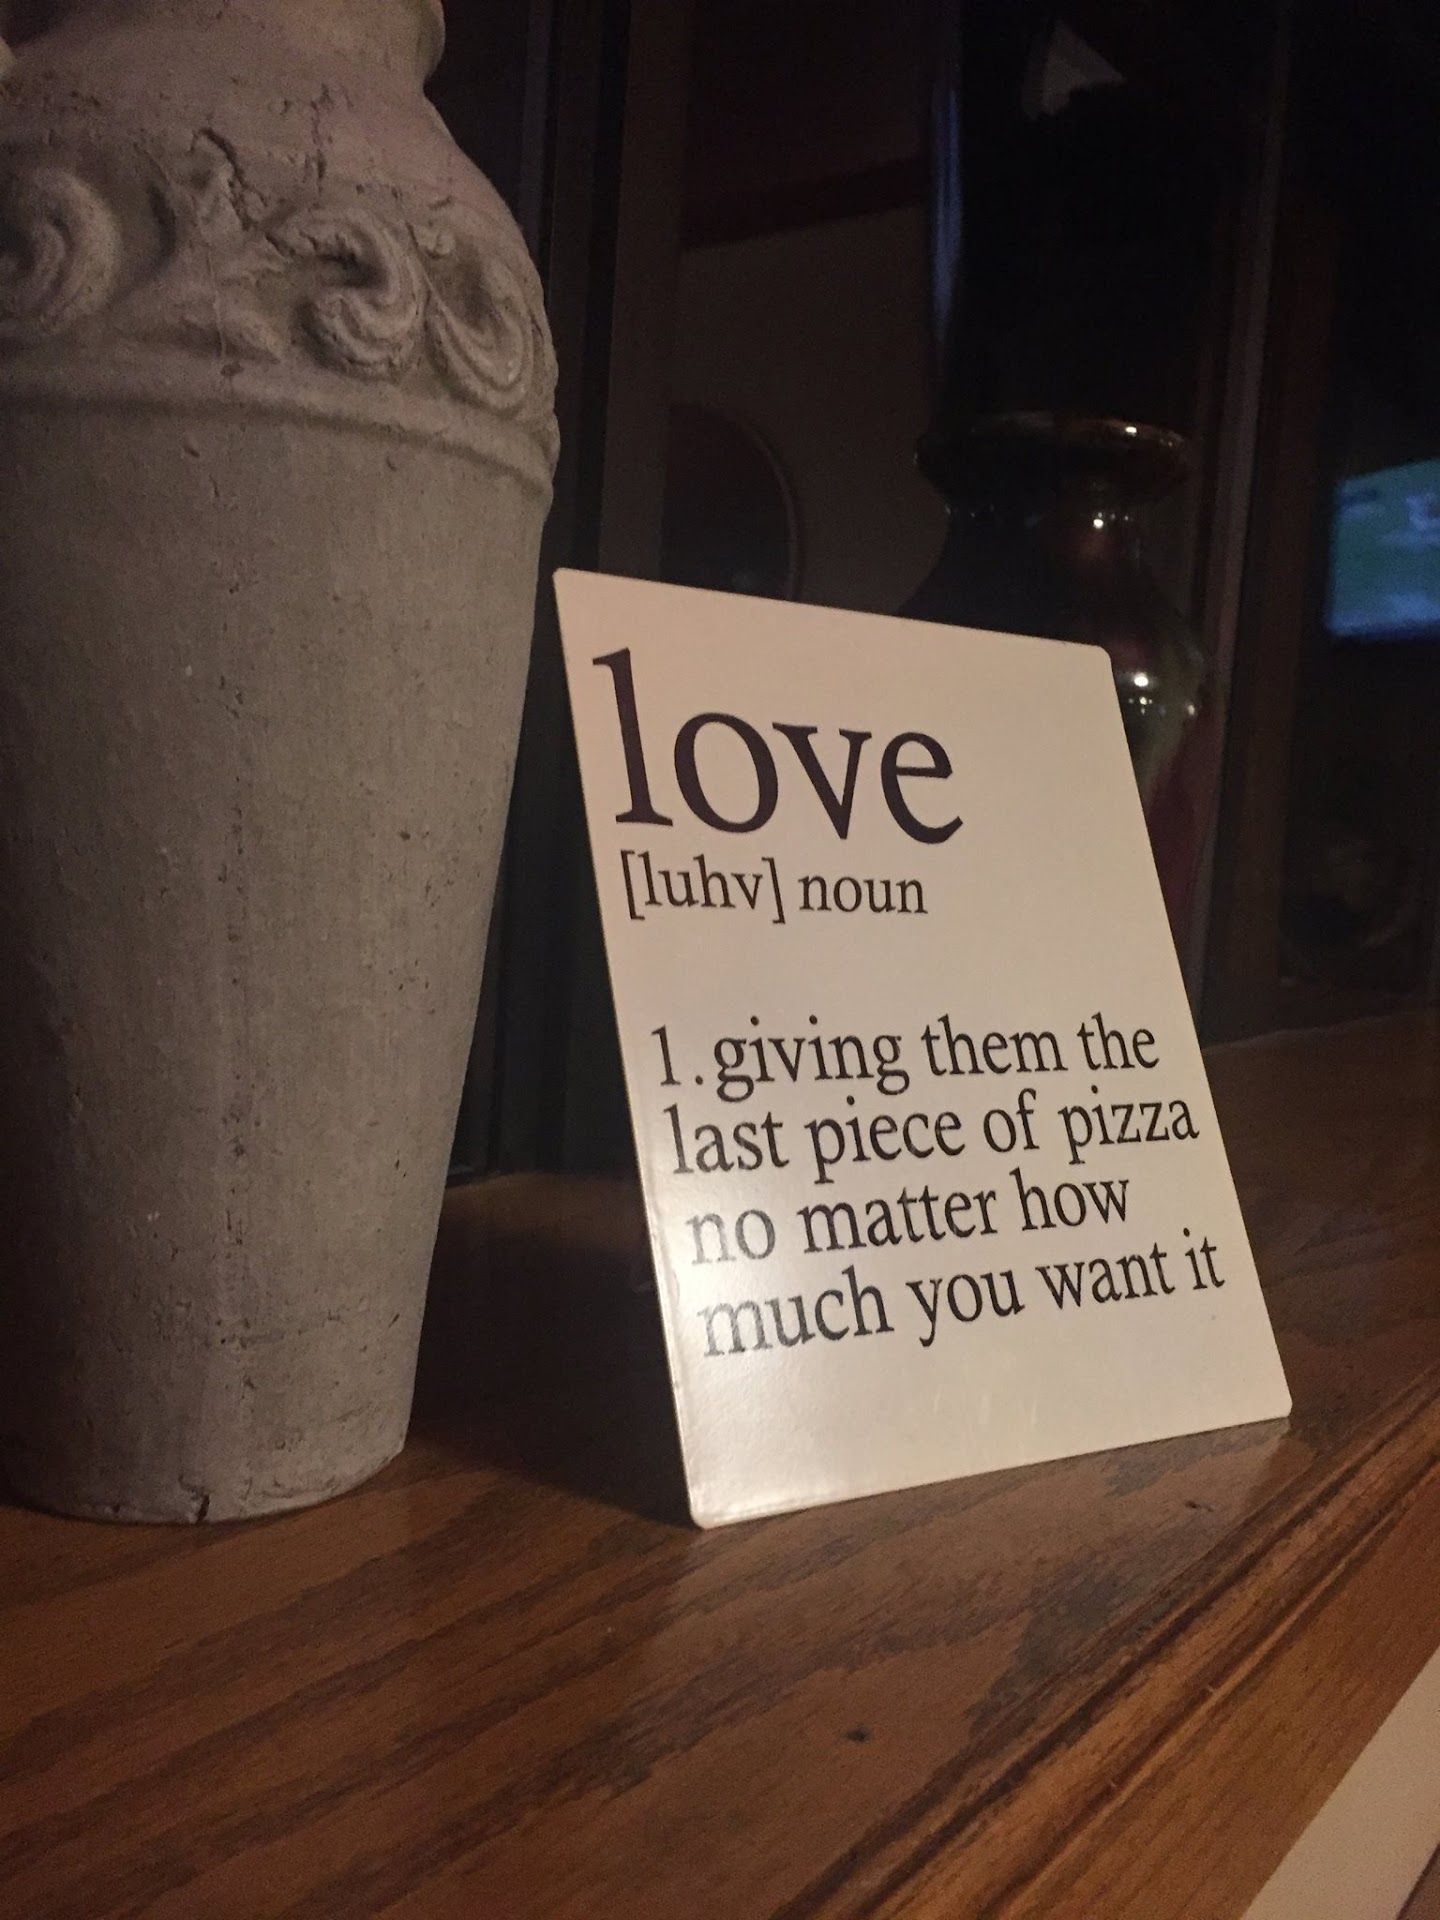 love
[luhv] noun
1. giving them the
last piece of pizza
no matter how
much you want it